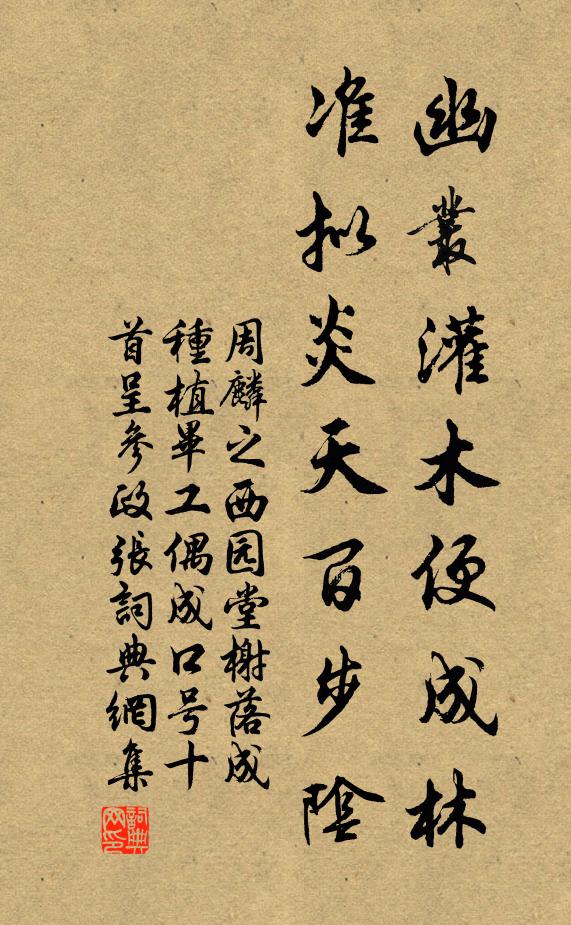 幽叢灌木便成林
准拟炎天百步陰
周麟之西园堂榭落成
種植畢工偶成口号十
首呈參政張詞典網集
詞典网印